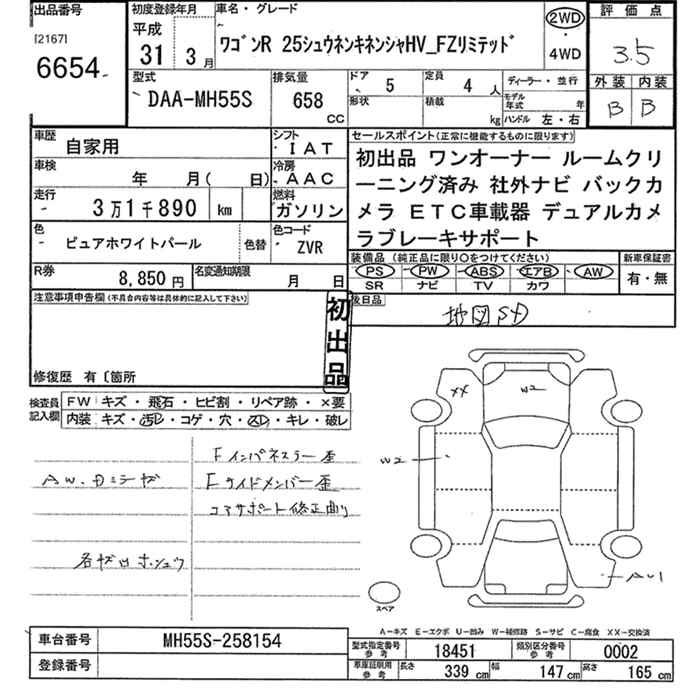 出品番号
[2167]
6654
初度登録年月
平成
31年 3月
車名・グレード
ワゴンR 25シュウネンキネンシャHV_FZリミテッド
2WD
・
4WD
評価点
3.5
外装 内装
B B
型式
DAA-MH55S
排気量
658
CC
ドア 5
形状
定員 4 人
積載 kg
ディーラー・並行
モデル年式 年
ハンドル 左・右
車歴 自家用
シフト
IAT
車検 年 月( 日)
冷房
AAC
走行 3万1千890 km
燃料
ガソリン
色 ピュアホワイトパール
色替
色コード
ZVR
R券 8,850円
名変通知期限 月 日
セールスポイント(正常に機能するものに限ります)
初出品 ワンオーナー ルームクリ
ーニング済み 社外ナビ バックカ
メラ ETC車載器 デュアルカメ
ラブレーキサポート
装備品(純正品に限り○をつけてください)
PS PW ABS エアB AW
SR ナビ TV カワ
新車保証書
有・無
後日品
地図SD
注意事項申告欄(不具合内容等は具体的に記入して下さい)
初出品
修復歴 有〔箇所
検査員記入欄
FW キズ・飛石・ヒビ割・リペア跡・×要
内装 キズ・汚レ・コゲ・穴・スレ・キレ・破レ
Fインパネスラー歪
AW.Dミラーキズ
Fサイドメンバー歪
コアサポート修正曲り
各キズ凹ホシュウ
XX
W2
W2
AU1
スペア
A－キズ E－エクボ U－凹み W－補修跡 S－サビ C－腐食 XX－交換済
車台番号 MH55S-258154
登録番号
型式指定番号参考 18451
類別区分番号参考 0002
車庫証明用参考 長さ 339 cm 幅 147 cm 高さ 165 cm